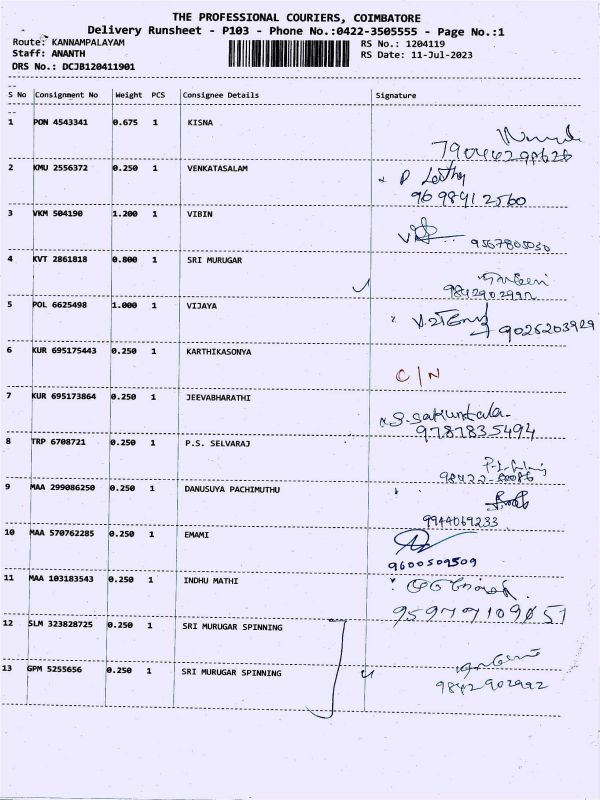 THE PROFESSIONAL COURIERS, COIMBATORE
Delivery Runsheet - P103 - Phone No.:0422-3505555 - Page No.:1
Route: KANNAMPALAYAM RS No.: 1204119
Staff: ANANTH RS Date: 11-Jul-2023
DRS No.: DCJB120411901
S No Consignment No Weight PCS Consignee Details Signature
1 PON 4543341 0.675 1 KISNA
2 KMU 2556372 0.250 1 VENKATASALAM
9698412560
3 VKM 504190 1.200 1 VIBIN
9567805030
4 KVT 2861818 0.800 1 SRI MURUGAR
9842902992
5 POL 6625498 1.000 1 VIJAYA
9026203929
6 KUR 695175443 0.250 1 KARTHIKASONYA
C/N
7 KUR 695173864 0.250 1 JEEVABHARATHI
S. Sakuntala
9787835494
8 TRP 6708721 0.250 1 P.S. SELVARAJ
9 MAA 299086250 0.250 1 DANUSUYA PACHIMUTHU
9944069233
10 MAA 570762285 0.250 1 EMAMI
9600509509
11 MAA 103183543 0.250 1 INDHU MATHI
12 SLM 323828725 0.250 1 SRI MURUGAR SPINNING
13 GPM 5255656 0.250 1 SRI MURUGAR SPINNING
9842902992